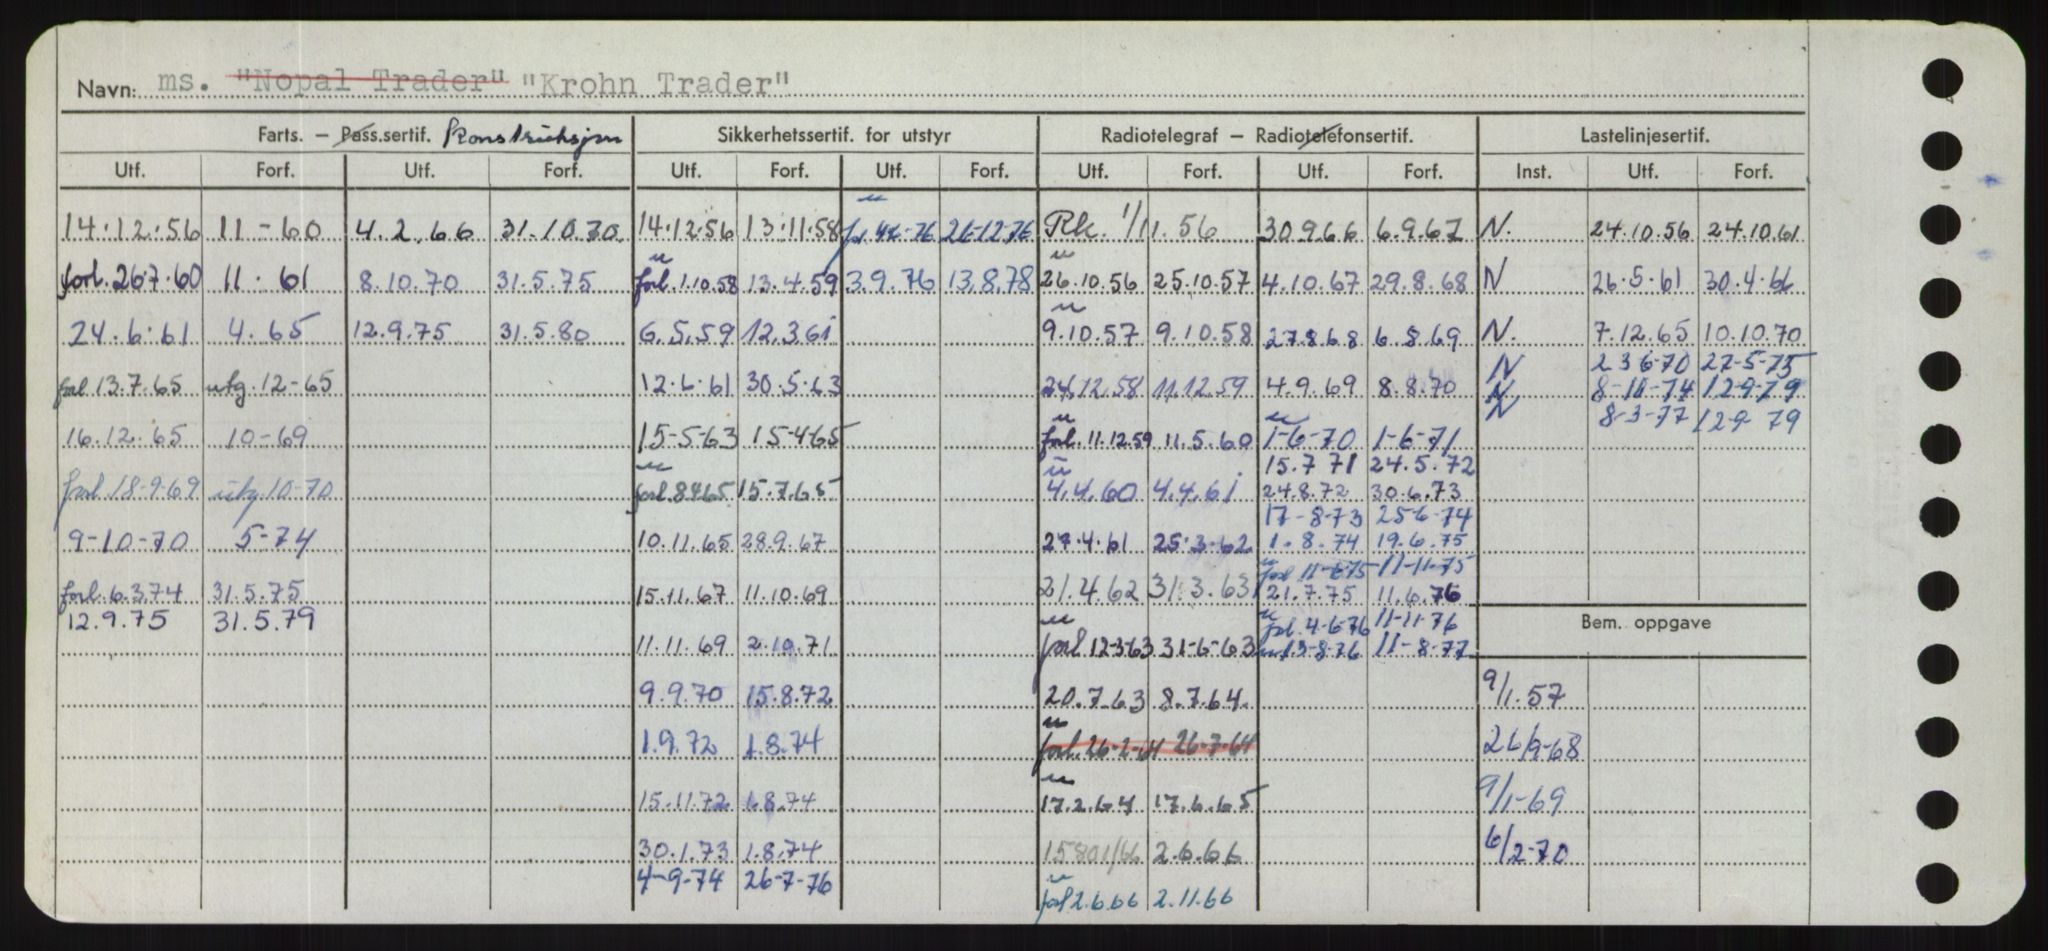 Navn: ms. "Nopal Trader" "Krohn Trader"
Farts. – Pass.sertif. Konstruksjon Sikkerhetssertif. for utstyr Radiotelegraf – Radiotelefonsertif. Lastelinjesertif.
Utf. Forf. Utf. Forf. Utf. Forf. Utf. Forf. Utf. Forf. Utf. Forf. Inst. Utf. Forf.
14.12.56 11-60 4.2.66 31.10.70 14.12.56 13.11.58 26-12.76 Rk. 1/11.56 30.9.66 6.9.67 N. 24.10.56 24.10.61
forl. 26.7.60 11.61 8.10.70 31.5.75 forl. 1.10.58 13.4.59 3.9.76 13.8.78 26.10.56 25.10.57 4.10.67 29.8.68 N 26.5.61 30.4.66
24.6.61 4.65 12.9.75 31.5.80 6.5.59 12.3.61 9.10.57 9.10.58 27.8.68 6.8.69 N. 7.12.65 10.10.70
N 23 6-70 27-5-75
forl 13.7.65 utg. 12-65 12.6.61 30.5.63 24.12.58 11.12.59 4.9.69 8.8.70 N 8-10-74 12-9-79
N 8-3-77 129 79
16.12.65 10-69 15-5-63 15-4-65 forl. 11.12.59 11.5.60 1-6-70 1-6-71
15.7 71 24.5.72
forl 18-9-69 utg. 10-70 forl 8465 15.7.65 4.4.60 4.4.61 24.8.72 30.6.73
17-8-73 25-6-74
9-10-70 5-74 10.11.65 28.9.67 27.4.61 25.3-62 1.8.74 19.6.75
forl 11-6-75 11-11-75
forl. 6.3.74 31.5.75 15.11.67 11.10.69 21.4.62 31.3.63 21.7.75 11.6.76
12.9.75 31.5.79 forl. 4-6-76 11-11-76
Bem. oppgave
11.11.69 2.10.71 forl 12-3-63 31-6-63 13-8-76 11-8-77
9.9.70 15.8.72 20.7.63 8.7.64. 9/1.57
1.9.72 1.8.74 forl. 26-2-64 26-7-64 26/9-68
15.11.72 1.8.74 17.2.64 17.6.65 9/1-69
30.1.73 1.8.74 2.6.66 6/2-70
4-9-74 26-7-76
forl 2.6.66 2.11.66